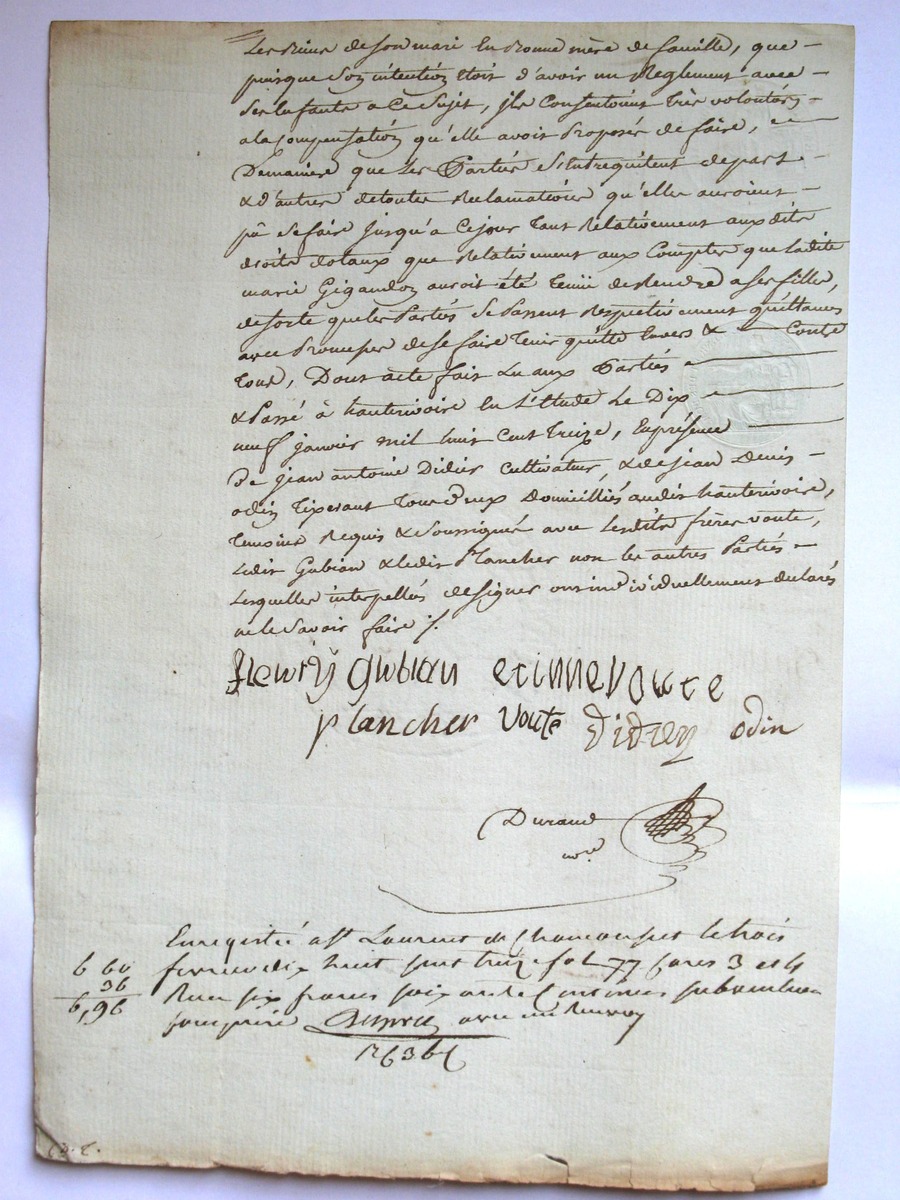 les biens de son mari en bonne mère de famille, que
puisque son intention etoit d'avoir un Reglement avec
ses enfants a ce sujet, ils consentoient très volontiers
a la compensation qu'elle avoit proposés de faire, en
Demaniere que les Parties s'entrequitent de part
& d'autres de toutes Reclamations qu'elles auroient
pû se faire jusqu'a ce jour tant Relativement aux dits
droits dotaux que Relativement aux Comptes que ladite
marie Gigandon auroit été tenüe de Rendre a ses filles,
de sorte que les Parties se Passent Respectivement quittances
avec Promesses de se faire tenir quitte envers & Contre
tous, Dont acte fait Lu aux Parties
& Passé à hauterivoire en L'etude Le Dix
neuf janvier mil huit cent treize, En présence
De jean antoine Didier Cultivateur, & de jean Denis
odin tixerant tous deux Domicilliés audit hauterivoire,
temoins Requis & soussignés avec lesdits frères voute,
Ledit Gubian & ledit Plancher non les autres Parties
Lesquelles interpellés de signer ont individuellement declarés
ne le savoir faire ./.
fleury gubian etinne voute
plancher voute didier odin
Durand
nre
Enregistré a St Laurent de Chamousset le trois
fevrier dix huit cent treize fol 77 cases 3 et 4
Reçu six francs soixante centimes subvention
6 60
36
6,96
avec un Renvoy